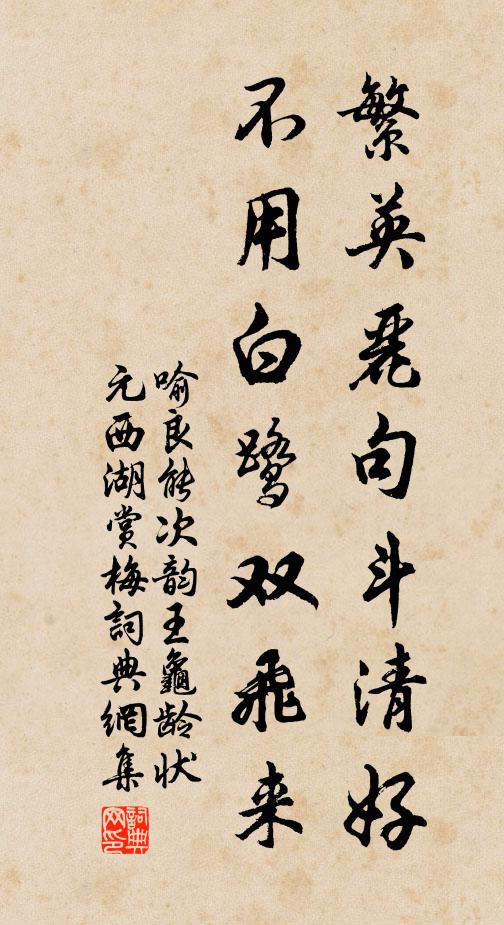 繁英丽句斗清好
不用白鹭双飞来
喻良能次韵王龜龄状
元西湖赏梅詞典網集
詞典网印